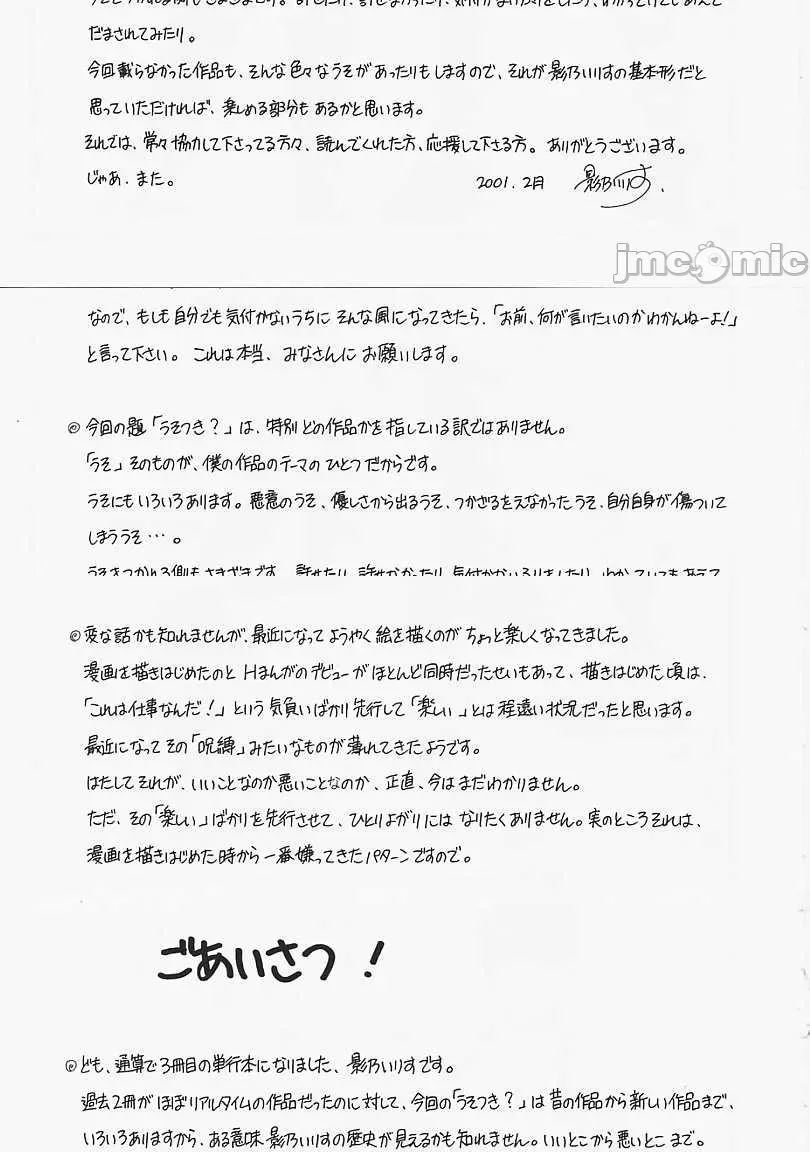 だまされてみたり。
今回載らなかった作品も、そんな色々なうそがあったりもしますので、それが影乃いりすの基本形だと
思っていただければ、楽しめる部分もあるかと思います。
それでは、常々協力して下さってる方々、読んでくれた方、応援して下さる方。ありがとうございます。
じゃあ、また。 2001.2月 影乃いりす.
jmcomic
なので、もしも自分でも気付かないうちにそんな風になってきたら、「お前、何が言いたいのかわかんねーよ!」
と言って下さい。これは本当、みなさんにお願いします。
◎今回の題「うそつき?」は、特別どの作品かを指している訳ではありません。
「うそ」そのものが、僕の作品のテーマのひとつだからです。
うそにもいろいろあります。悪意のうそ、優しさから出るうそ、つかざるをえなかったうそ、自分自身が傷ついて
しまううそ…。
うそをつかれる側もさまざまです。許せたり、許せなかったり、気付かないふりをしたり、わかっていてもあえて
◎変な話かも知れませんが、最近になってようやく絵を描くのがちょっと楽しくなってきました。
漫画を描きはじめたのとHまんがのデビューがほとんど同時だったせいもあって、描きはじめた頃は、
「これは仕事なんだ!」という気負いばかり先行して「楽しい」とは程遠い状況だったと思います。
最近になってその「呪縛」みたいなものが薄れてきたようです。
はたしてそれが、いいことなのか悪いことなのか、正直、今はまだわかりません。
ただ、その「楽しい」ばかりを先行させて、ひとりよがりにはなりたくありません。実のところそれは、
漫画を描きはじめた時から一番嫌ってきたパターンですので。
ごあいさつ!
◎ども、通算で3冊目の単行本になりました、影乃いりすです。
過去2冊がほぼリアルタイムの作品だったのに対して、今回の「うそつき?」は昔の作品から新しい作品まで、
いろいろありますから、ある意味影乃いりすの歴史が見えるかも知れません。いいとこから悪いとこまで。